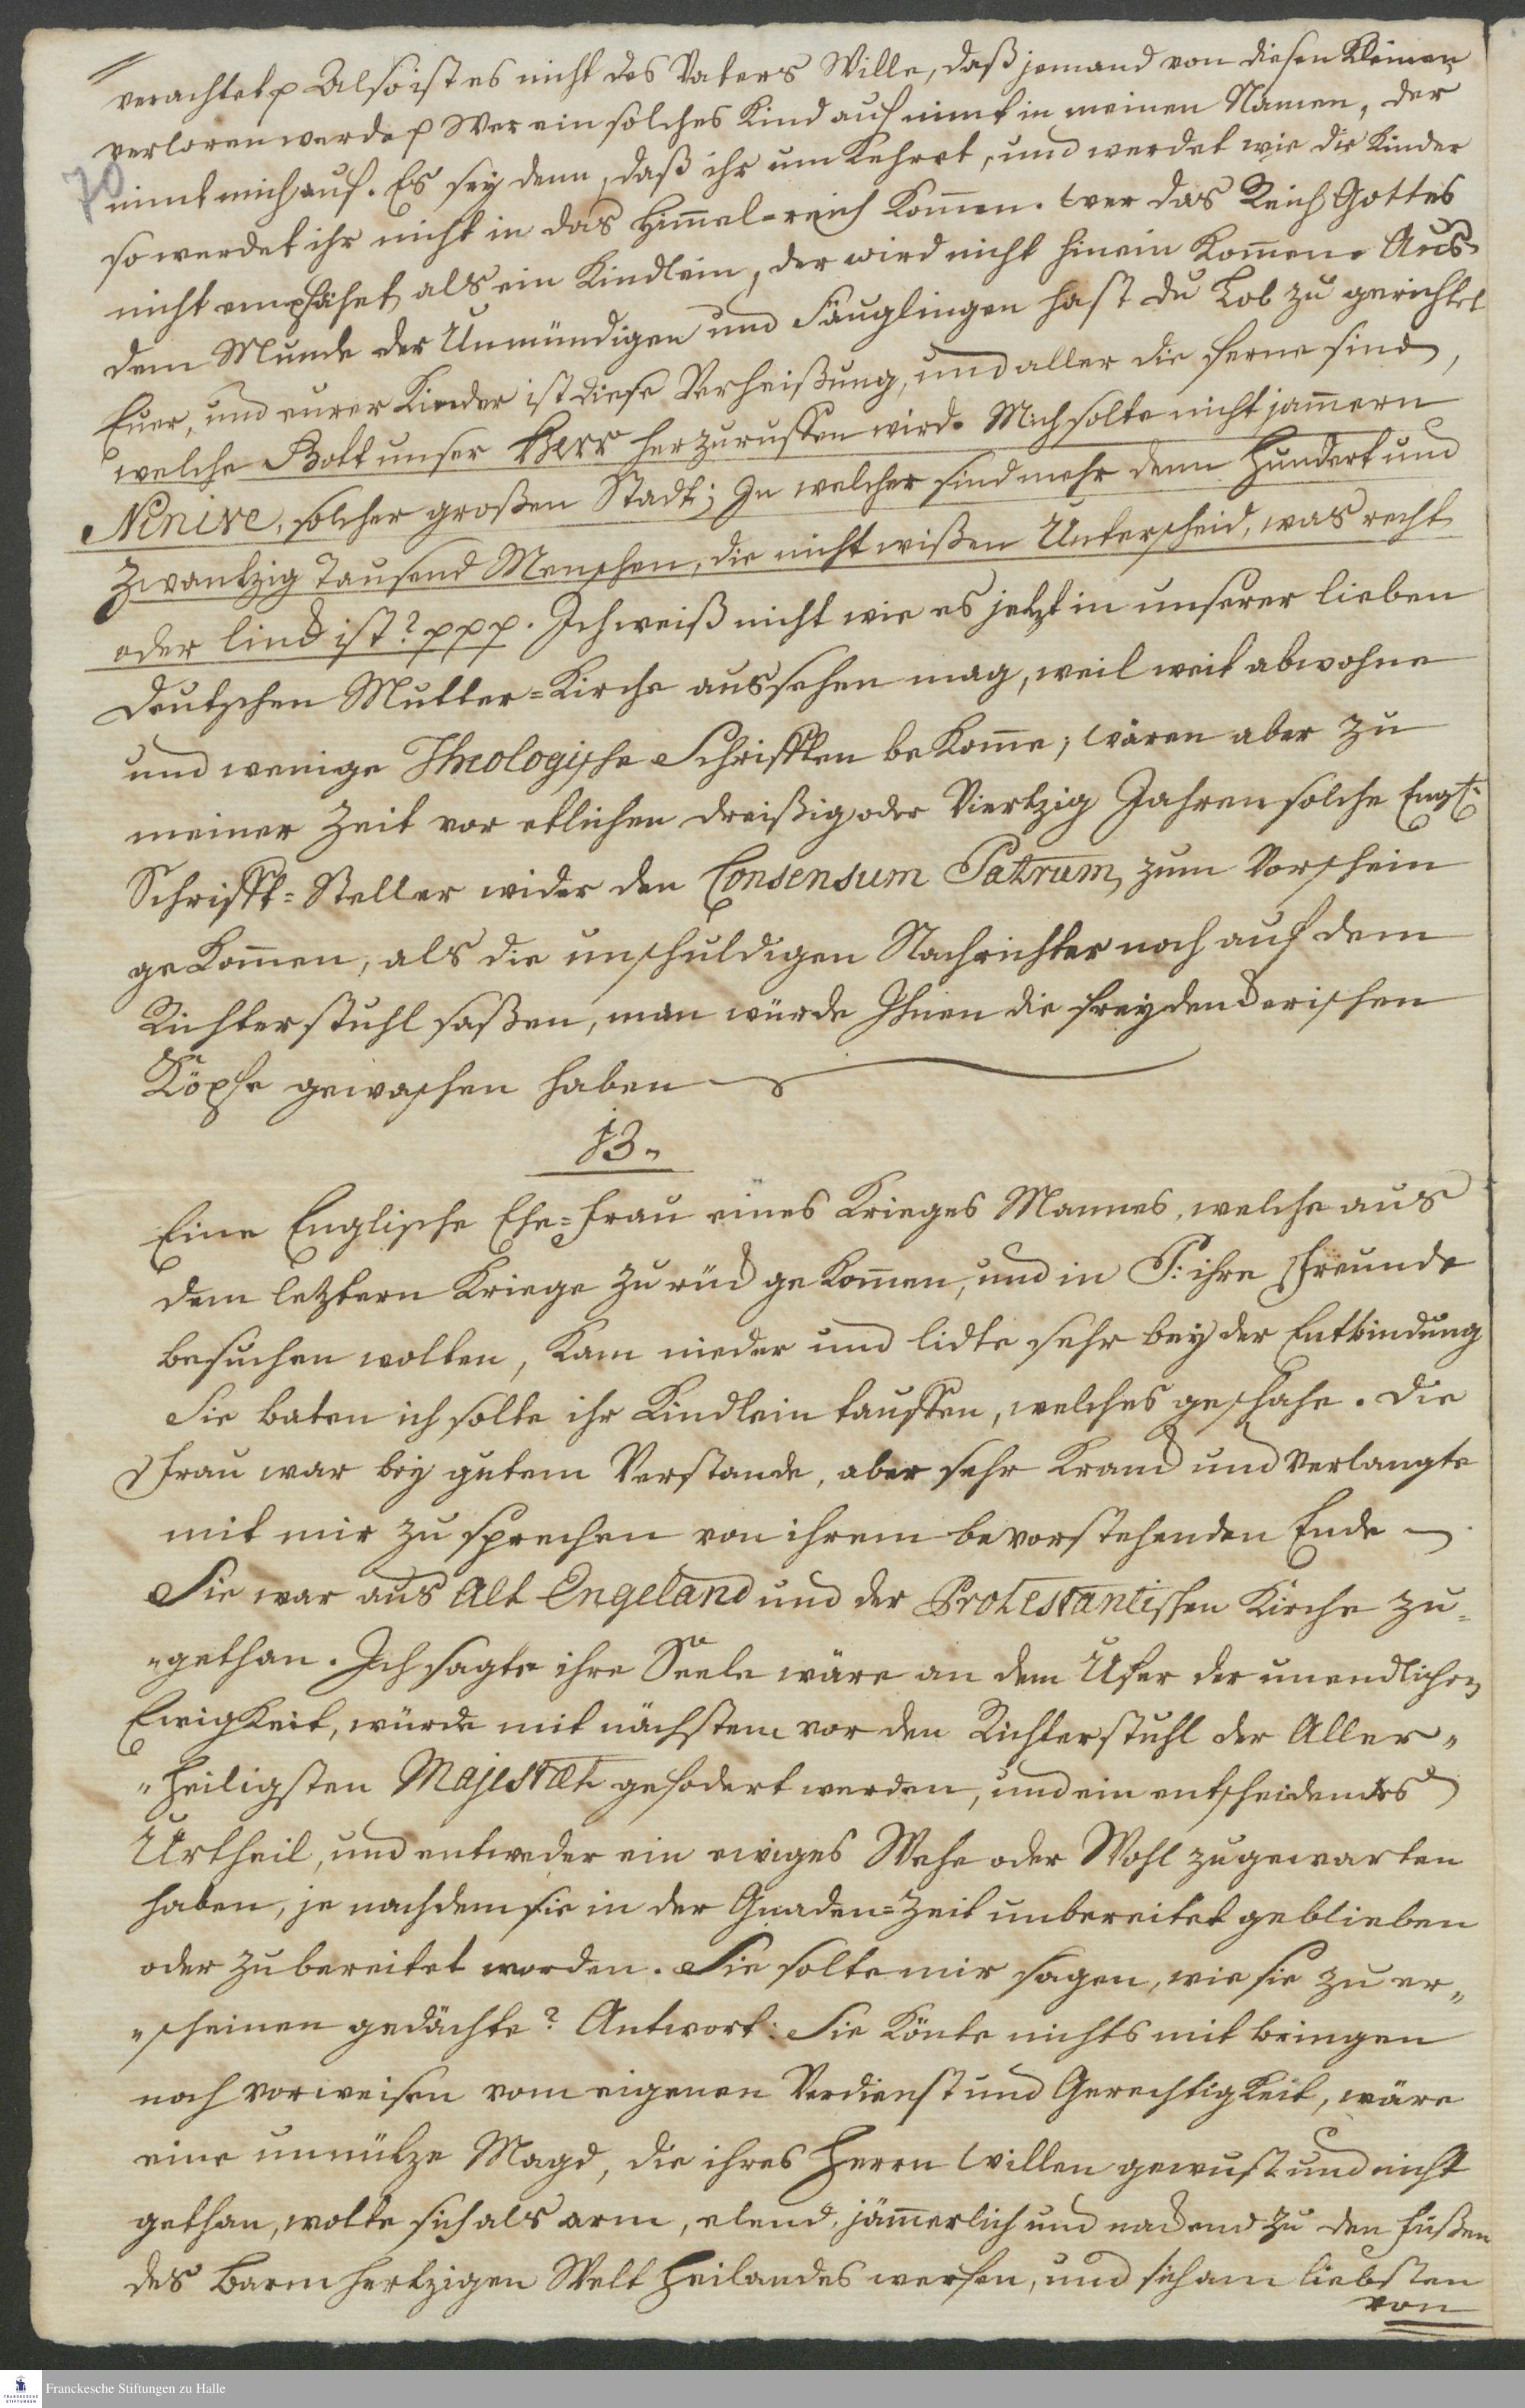 verachtet p Also ist es nicht des Vaters Wille, daß jemand von diesen Kleinen
verloren werde p Wer ein solches Kind aufnimt in meinen Namen, der
70
nimt mich auf. Es sey denn, daß ihr umkehret, und werdet wie die Kinder
so werdet ihr nicht in das Himmel=reich kommen. wer das Reich Gottes
nicht empfähet als ein Kindlein, der wird nicht hinein kommen. Aus
dem Munde der Unmündigen und Säuglingen hast du Lob zu gerichtet
Euer, und eurer Kinder ist diese Verheißung, und aller die ferne sind,
welche Gott unser Herr herzuruffen wird. Mich solte nicht jammern
Ninive, solcher großen Stadt; In welcher sind mehr denn Hundert und
Zwantzig Tausend Menschen, die nicht wißen Unterscheid, was recht
oder linck ist? ppp. Ich weiß nicht wie es jetzt in unserer lieben
deutschen Mutter=Kirche aussehen mag, weil weit abwohne
und wenige Theologische Schrifften bekomme; wären aber zu
meiner Zeit vor etlichen dreißig oder Viertzig Jahren solche Engl:
Schrifft=Steller wider den Consensum Patrum zum Vorschein
gekommen, als die unschuldigen Nachrichter noch auf dem
Richterstuhl saßen, man würde Ihnen die freydenckerischen
Köpfe gewaschen haben
13.
Eine Englische Ehe=frau eines Krieges Mannes, welche aus
dem letztern Kriege zurück gekommen, und in P: ihre Freunde
besuchen wolten, kam nieder und lidte sehr bey der Entbindung
Sie baten ich solte ihr Kindlein tauffen, welches geschahe. Die
Frau war bey gutem Verstande, aber sehr kranck und verlangte
mit mir zu sprechen von ihrem bevorstehenden Ende
Sie war aus Alt Engeland und der Protestantischen Kirche zu=
"gethan. Ich sagte ihre Seele wäre an dem Ufer der unendlichen
Ewigkeit, würde mit nächstem vor den Richterstuhl der Aller"
"heiligsten Majestæt gefodert werden, und ein entscheidendes
Urtheil, und entweder ein ewiges Wehe oder Wohl zugewarten
haben, je nachdem sie in der Gnaden=Zeit unbereitet geblieben
oder zubereitet worden. Sie solte mir sagen, wie sie zu er"
"scheinen gedächte? Antwort: Sie könte nichts mit bringen
noch vorweisen vom eigenen Verdienst und Gerechtigkeit, wäre
eine unnütze Magd, die ihres Herrn Willen gewust und nicht
gethan, wolte sich als arm, elend, jämmerlich und nackend zu den füßen
des barmhertzigen Welt Heilandes werfen, und sich am liebsten
von
Franckesche Stiftungen zu Halle